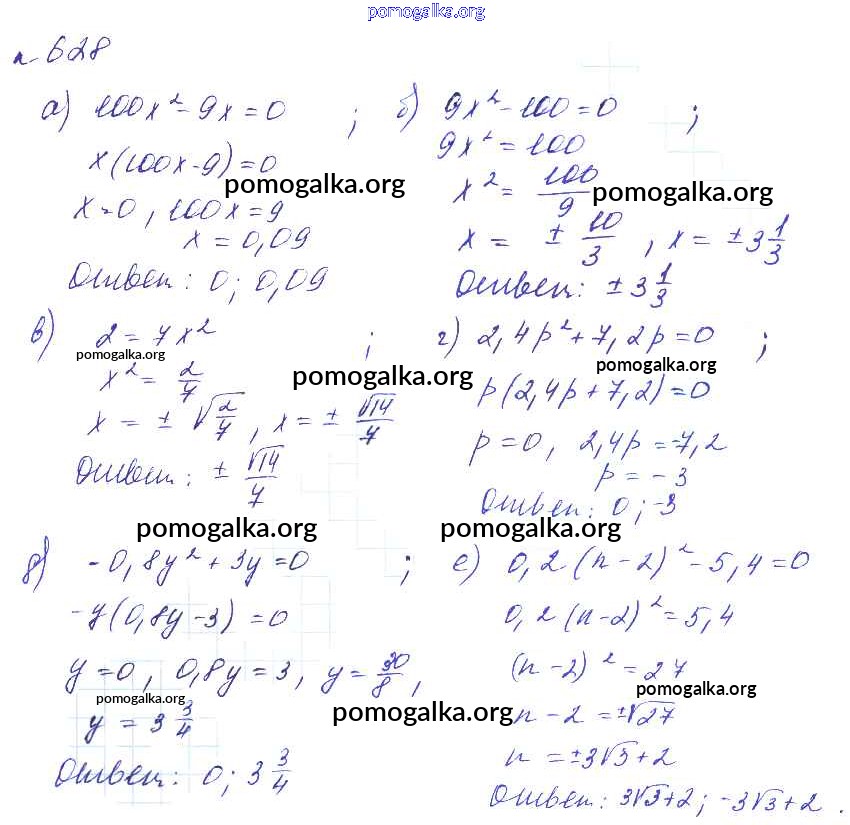 pomogalka.org
n 628
а) 100x² - 9x = 0 ;
x(100x - 9) = 0
pomogalka.org
x = 0, 100x = 9
x = 0,09
Ответ: 0; 0,09
б) 9x² - 100 = 0 ;
9x² = 100
x² = 100/9
pomogalka.org
x = ± 10/3, x = ± 3 1/3
Ответ: ± 3 1/3
в) 2 = 7x² ;
pomogalka.org
x² = 2/7
pomogalka.org
x = ± √(2/7), x = ± √14/7
Ответ: ± √14/7
г) 2,4p² + 7,2p = 0 ;
pomogalka.org
p(2,4p + 7,2) = 0
p = 0, 2,4p = -7,2
p = -3
Ответ: 0; -3
pomogalka.org
д) -0,8y² + 3y = 0 ;
-y(0,8y - 3) = 0
y = 0, 0,8y = 3, y = 30/8,
pomogalka.org
y = 3 3/4
pomogalka.org
Ответ: 0; 3 3/4
pomogalka.org
е) 0,2(n - 2)² - 5,4 = 0
0,2(n - 2)² = 5,4
(n - 2)² = 27
pomogalka.org
n - 2 = ±√27
n = ±3√3 + 2
Ответ: 3√3 + 2; -3√3 + 2.